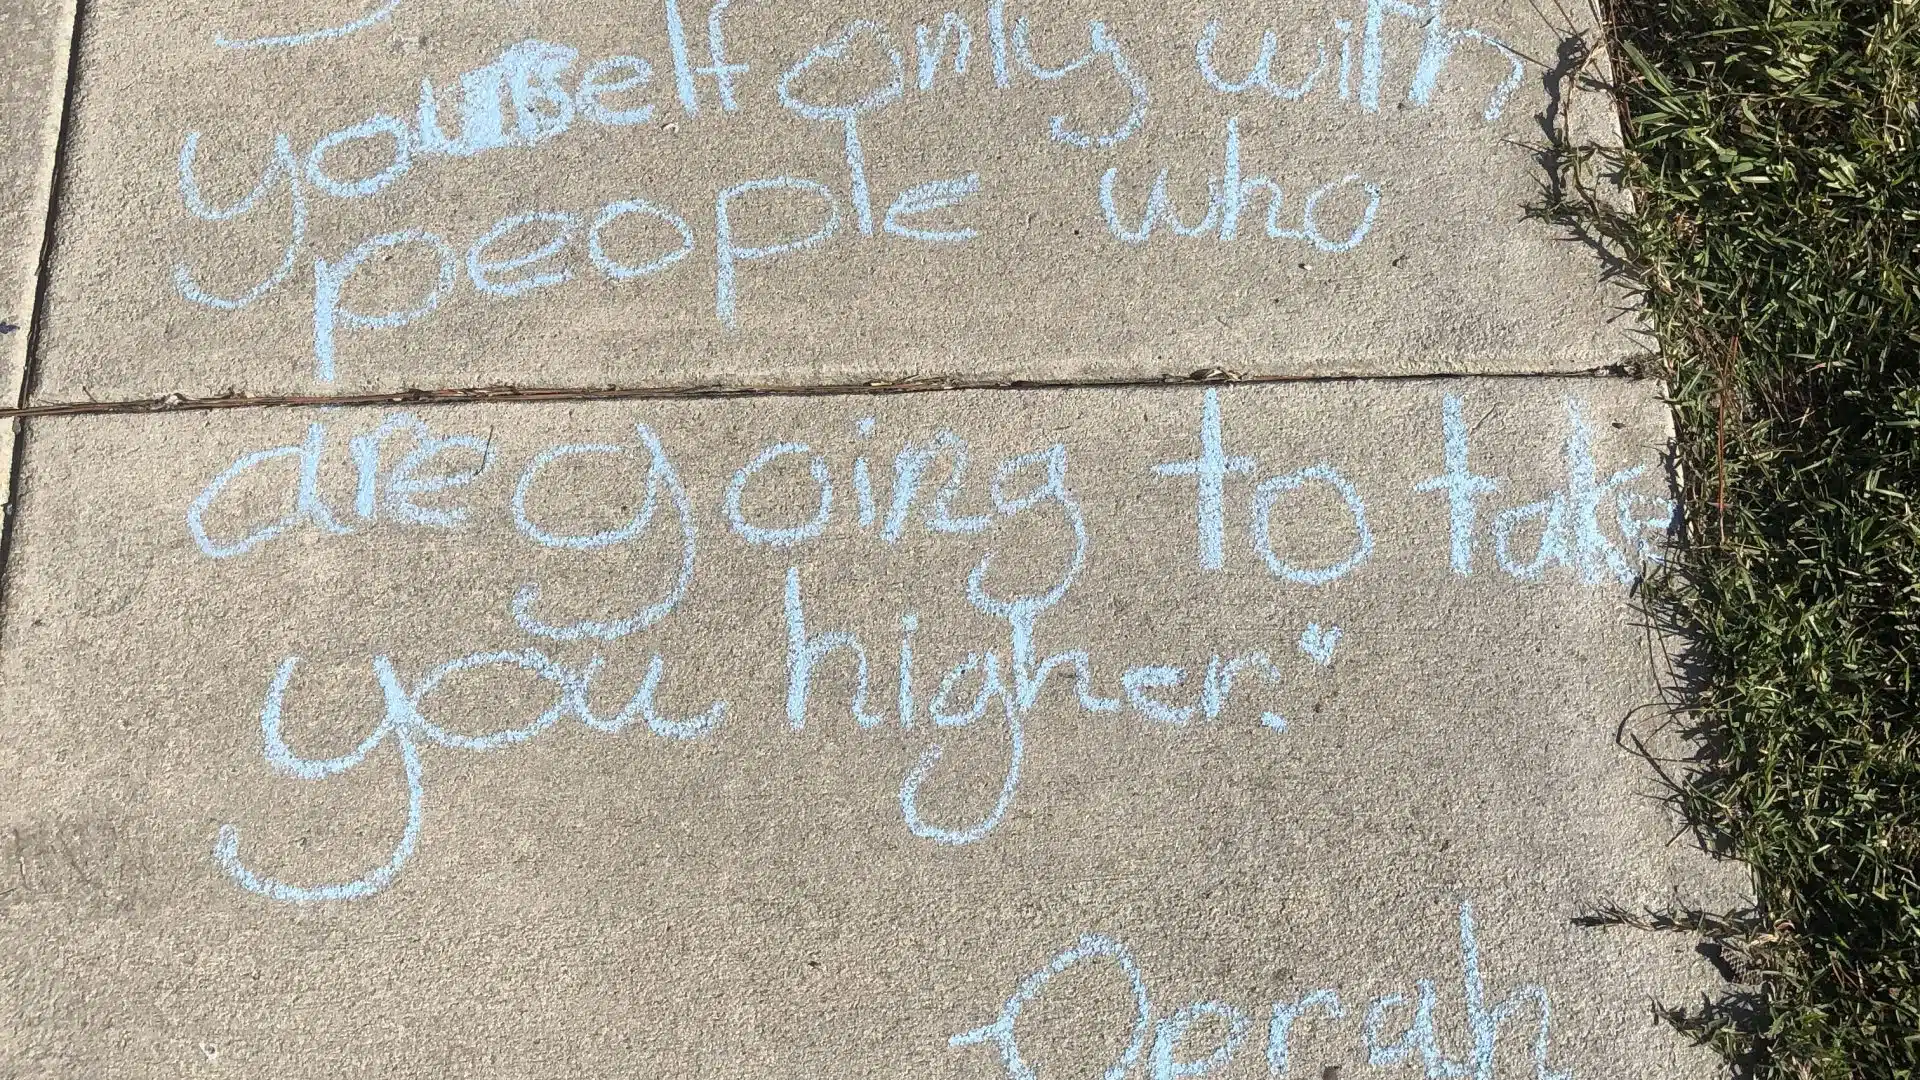 yourself only with
people who
are going to take
you higher."
-Oprah